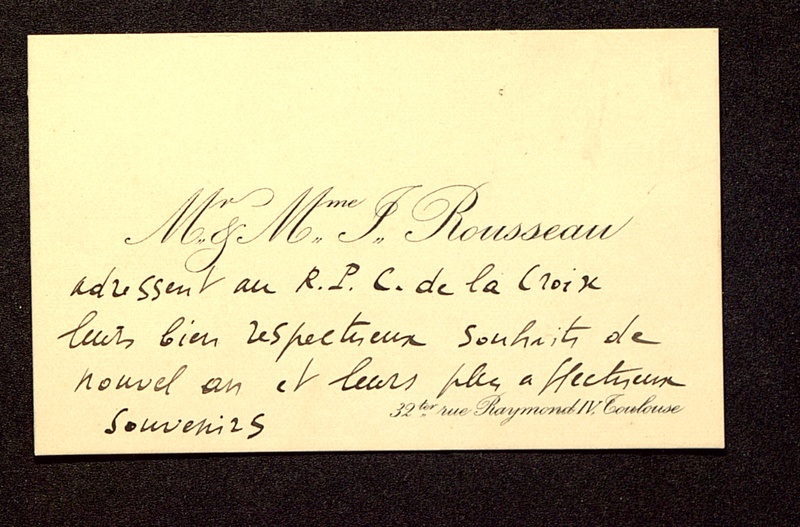 Mr. & Mme. J. Rousseau
adressent au R.P. C. de la Croix
leurs bien respectueux souhaits de
nouvel an et leurs plus affectueux
souvenirs
32ter rue Raymond IV, Toulouse